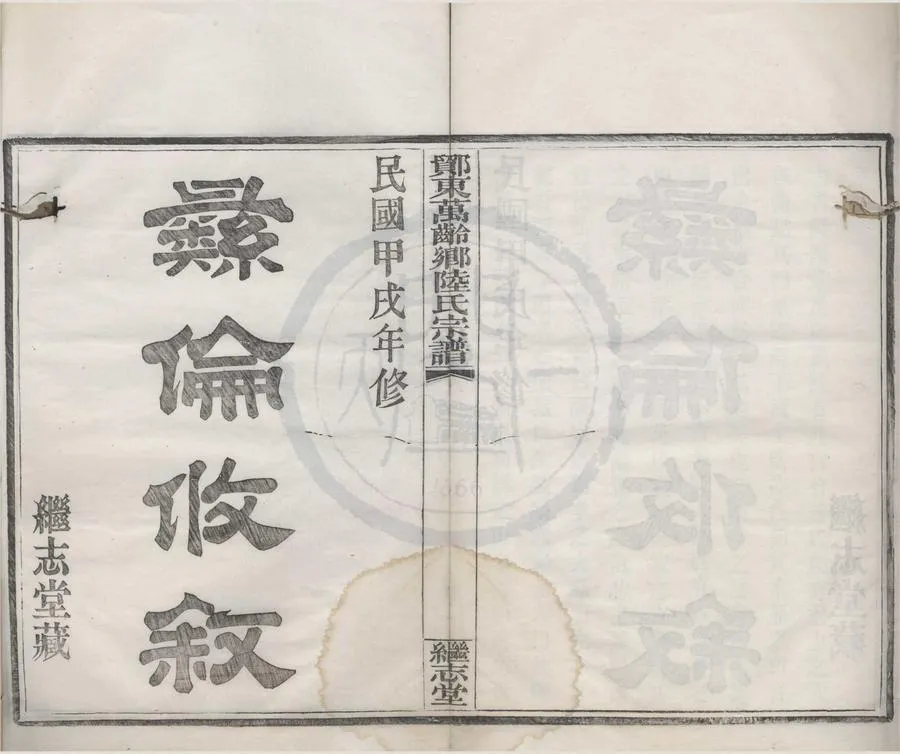 鄮東萬齡鄉陸氏宗譜
繼志堂
民國甲戌年修
彝倫攸敘
繼志堂藏
1666